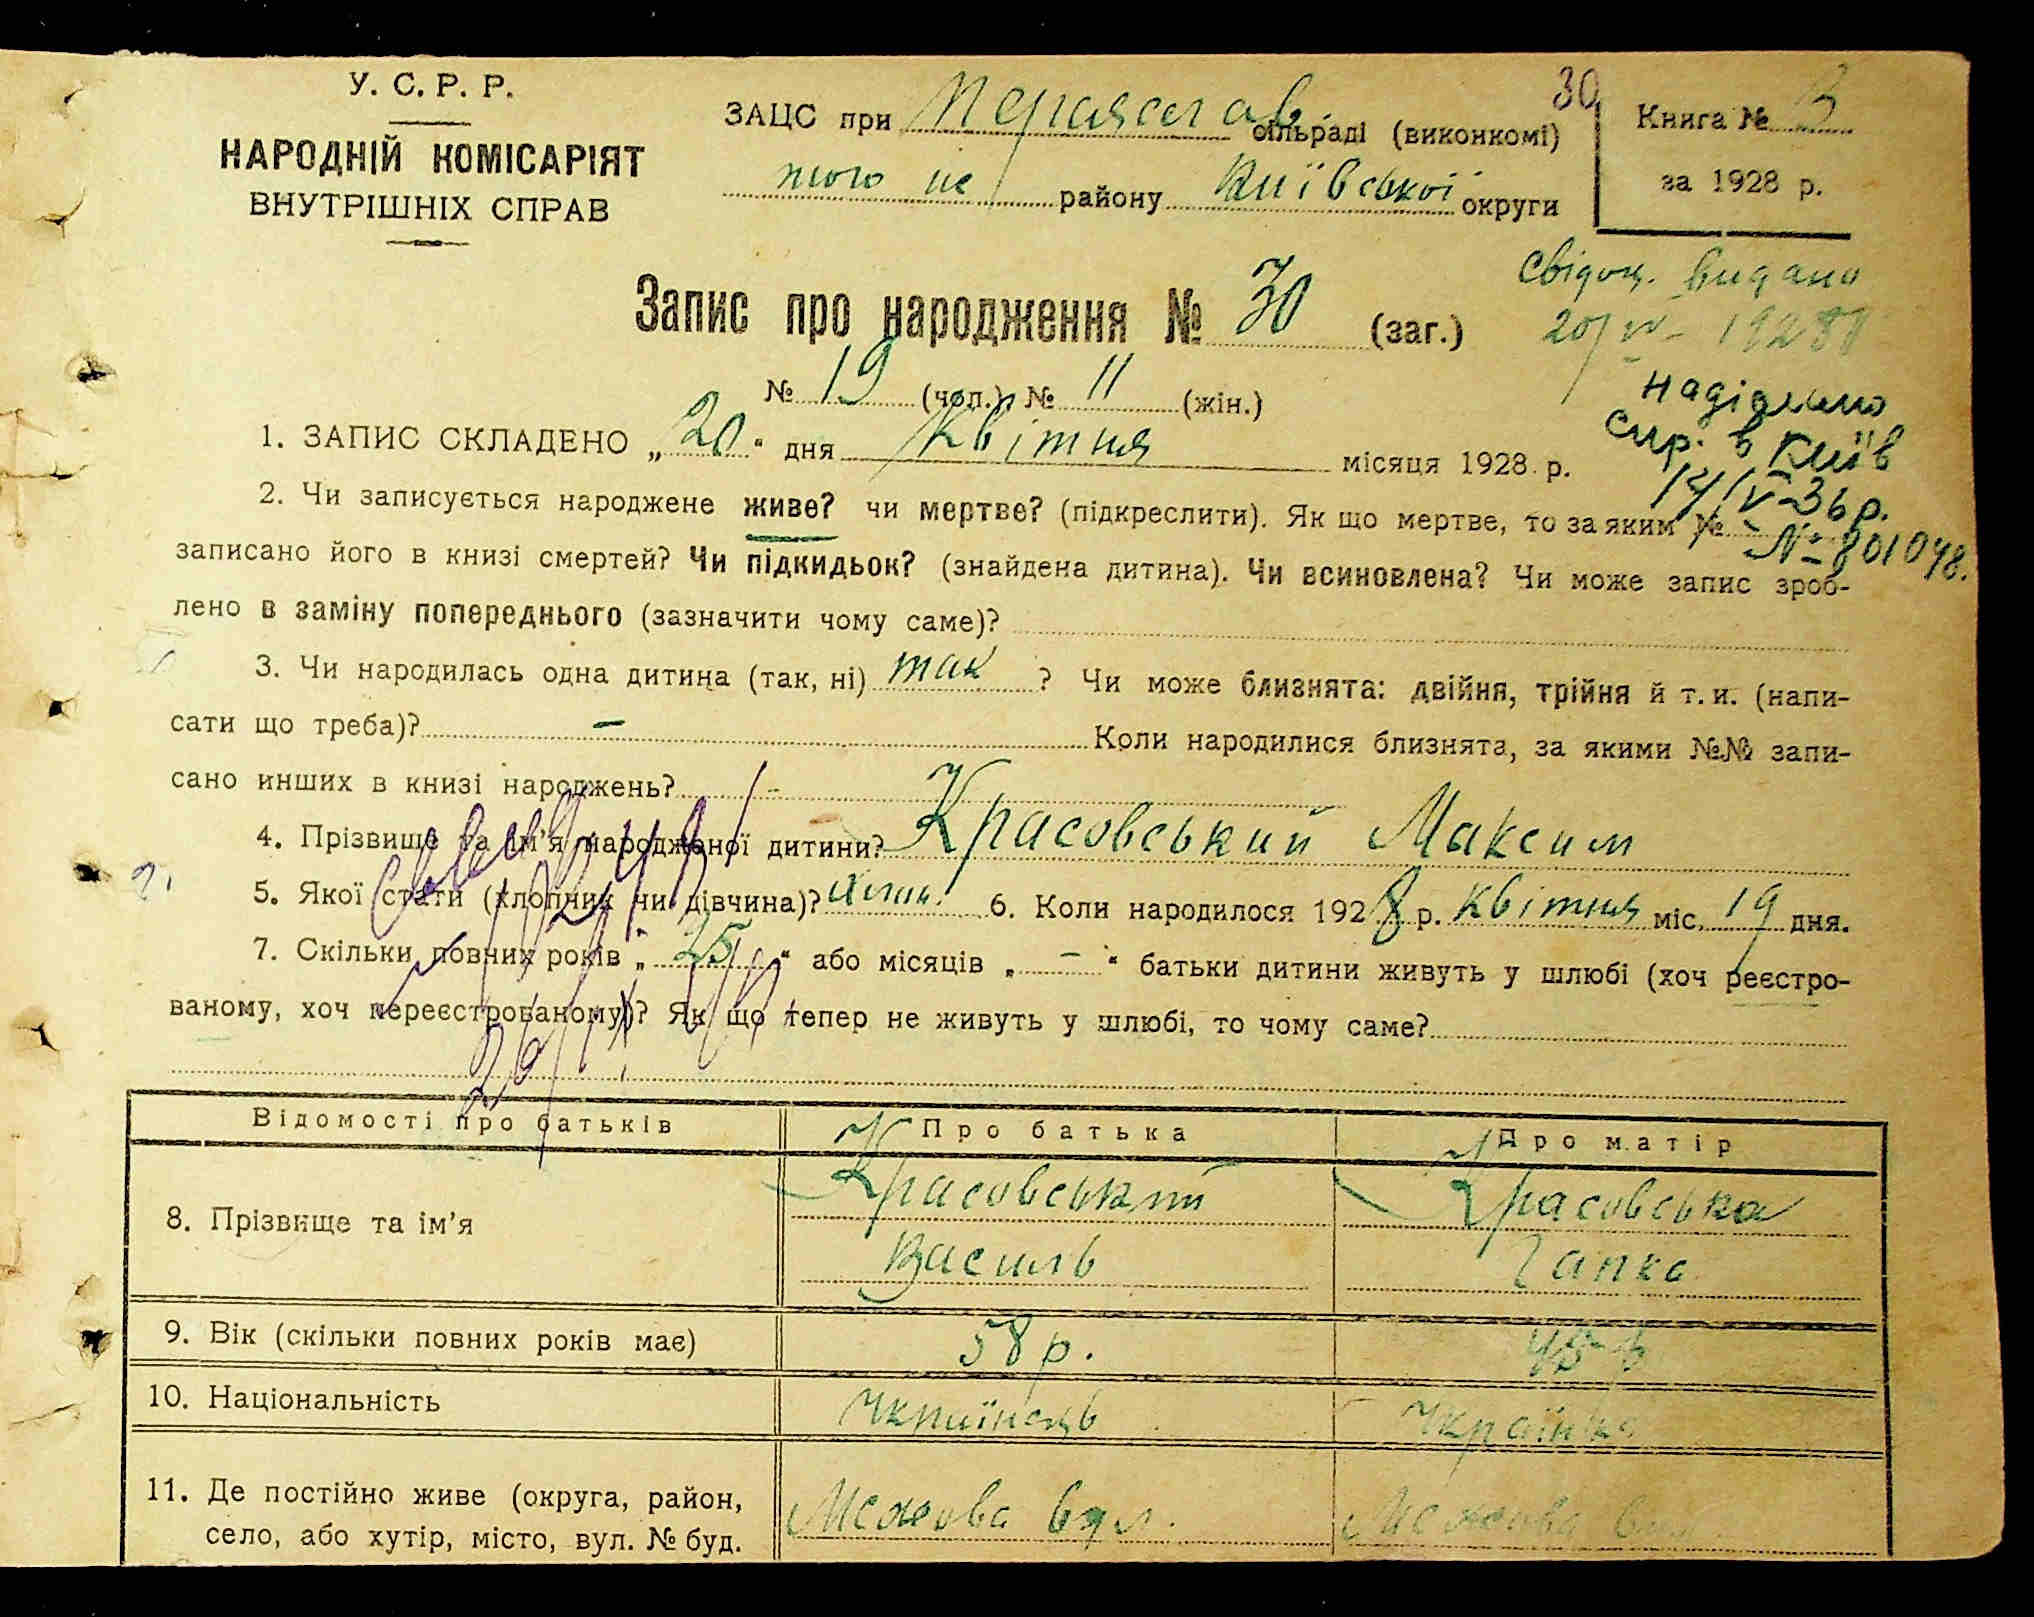 У. С. Р. Р.
НАРОДНІЙ КОМІСАРІЯТ
ВНУТРІШНІХ СПРАВ
ЗАЦС при Переяслав. сільраді (виконкомі)
того же району Київської округи
30
Книга № 3
за 1928 р.
Запис про народження № 30 (заг.)
Свідоц. видано
20/IV - 1928
№ 19 (чол.) № 11 (жін.)
Надіслано
в Київ
14/V-36 р.
№ 801048.
1. ЗАПИС СКЛАДЕНО „20“ дня Квітня місяця 1928 р.
2. Чи записується народжене живе? чи мертве? (підкреслити). Як що мертве, то за яким №
записано його в книзі смертей? Чи підкидьок? (знайдена дитина). Чи всиновлена? Чи може запис зроб-
лено в заміну попереднього (зазначити чому саме)?
3. Чи народилась одна дитина (так, ні) так ? Чи може близнята: двійня, трійня й т. и. (напи-
сати що треба)? - Коли народилися близнята, за якими №№ запи-
сано инших в книзі народжень? -
4. Прізвище та ім'я народженої дитини? Красовський Максим
5. Якої стати (хлопчик чи дівчина)? Хлоп. 6. Коли народилося 1928 р. Квітня міс. 19 дня.
7. Скільки повних років „25“ або місяців „-“ батьки дитини живуть у шлюбі (хоч реєстро-
ваному, хоч нереєстрованому)? Як що тепер не живуть у шлюбі, то чому саме?
Відомості про батьків Про батька Про матір
8. Прізвище та ім'я Красовський Красовська
Василь Гапка
9. Вік (скільки повних років має) 58 р. 45 р
10. Національність Українець Українка
11. Де постійно живе (округа, район, Межова вул. Межова вул.
село, або хутір, місто, вул. № буд.